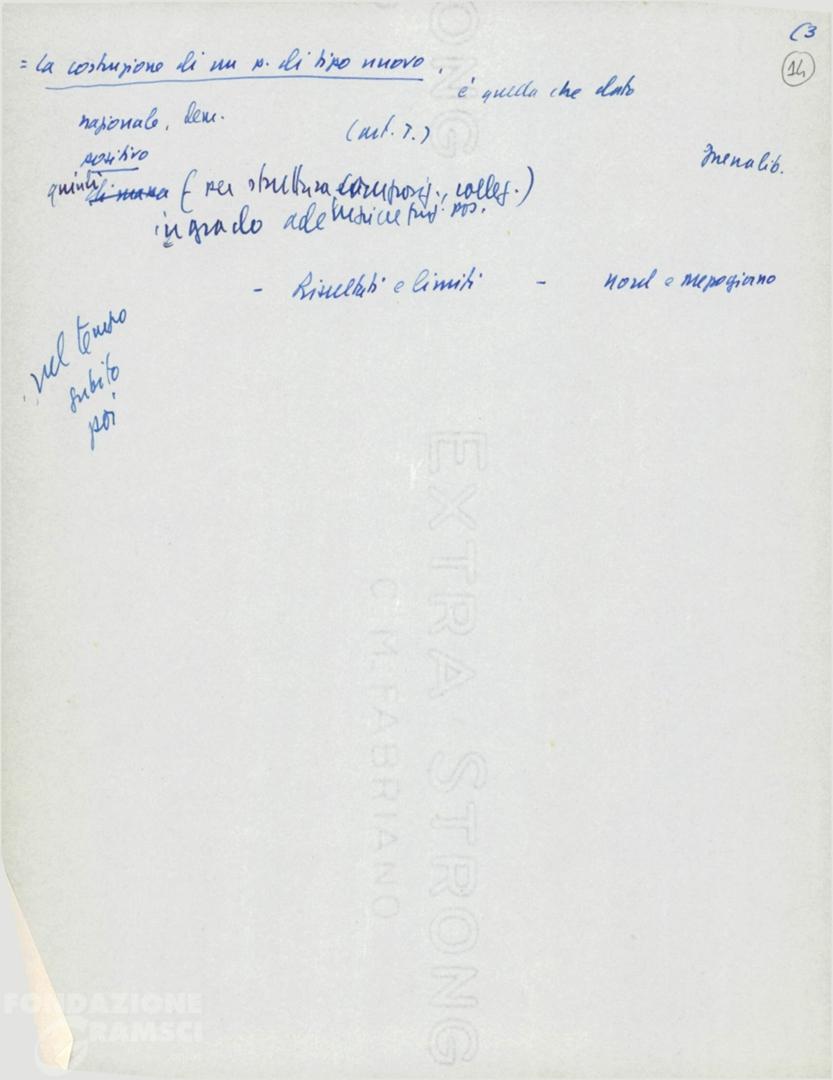 (3
14
= la costruzione di un p. di tipo nuovo,
è quella che dato
nazionale, dem.
(art. T.)
positivo
quindi di massa (per struttura, composiz., colleg.)
in grado
- Risultati e limiti - nord e mezzogiorno
nel tempo
subito
poi
EXTRA STRONG
C.M. FABRIANO
FONDAZIONE
GRAMSCI